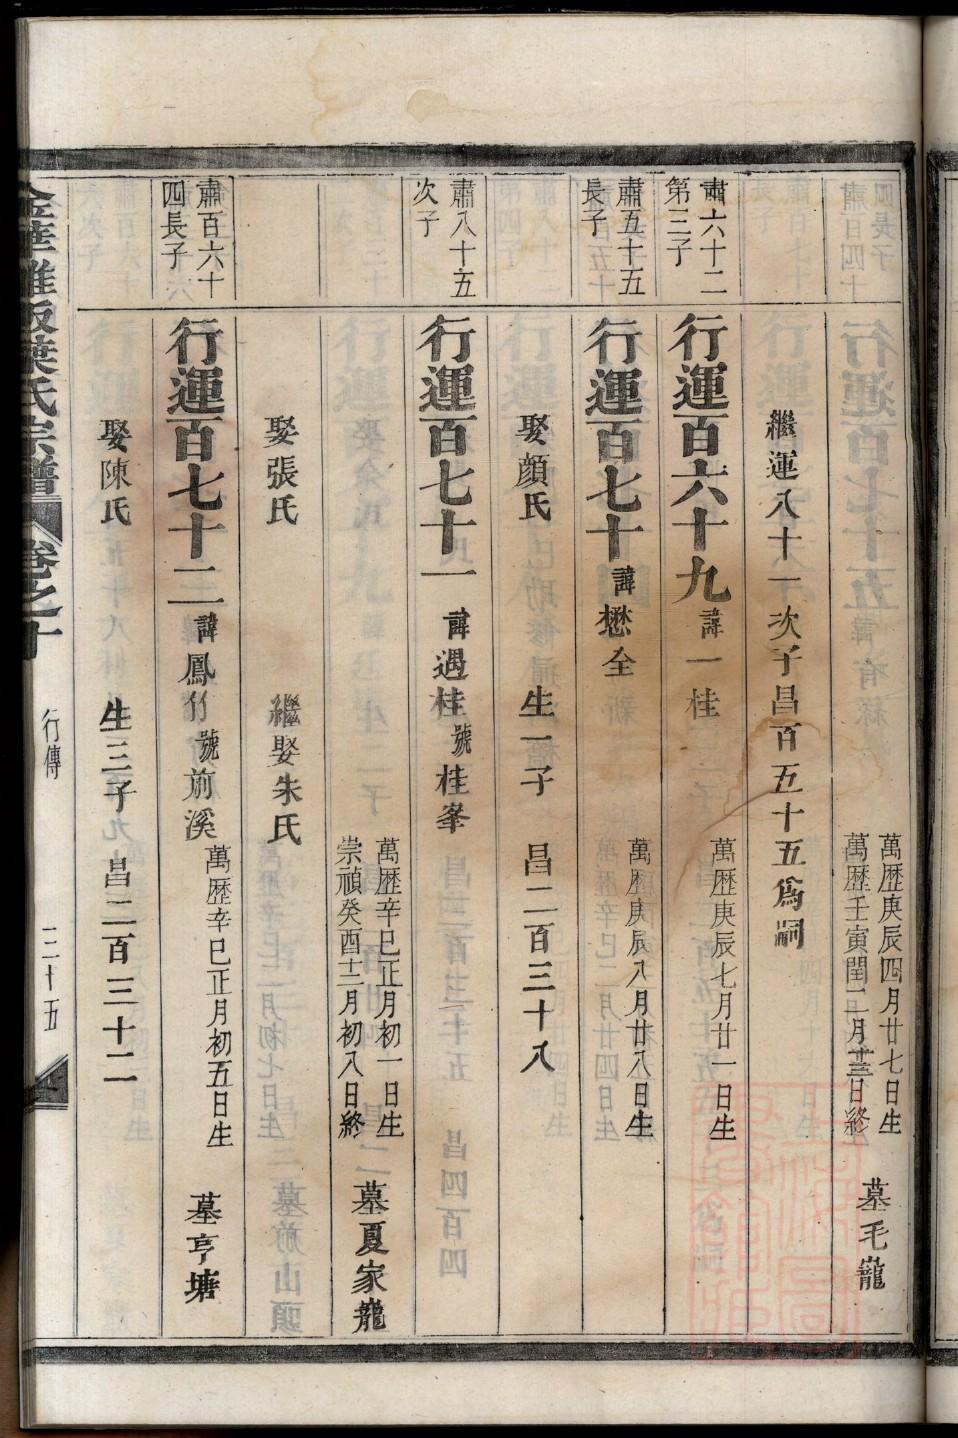 萬歷庚辰四月廿七日生
萬歷壬寅閏二月十三日終
墓毛巃
繼運八十一次子昌百五十五為嗣
肅六十二
第三子
行運百六十九 諱一桂
萬歷庚辰七月廿一日生
肅五十五
長子
行運百七十 諱懋全
萬歷庚辰八月廿八日生
娶顏氏 生一子 昌二百三十八
肅八十五
次子
行運百七十一 諱遇桂 號桂峯
萬歷辛巳正月初一日生
崇禎癸酉十二月初八日終
墓夏家巃
娶張氏 繼娶朱氏
肅百六十
四長子
行運百七十二 諱鳳竹 號前溪
萬歷辛巳正月初五日生
墓亨塘
娶陳氏 生三子 昌二百三十二
葉氏宗譜 卷之十 行傳 三十五